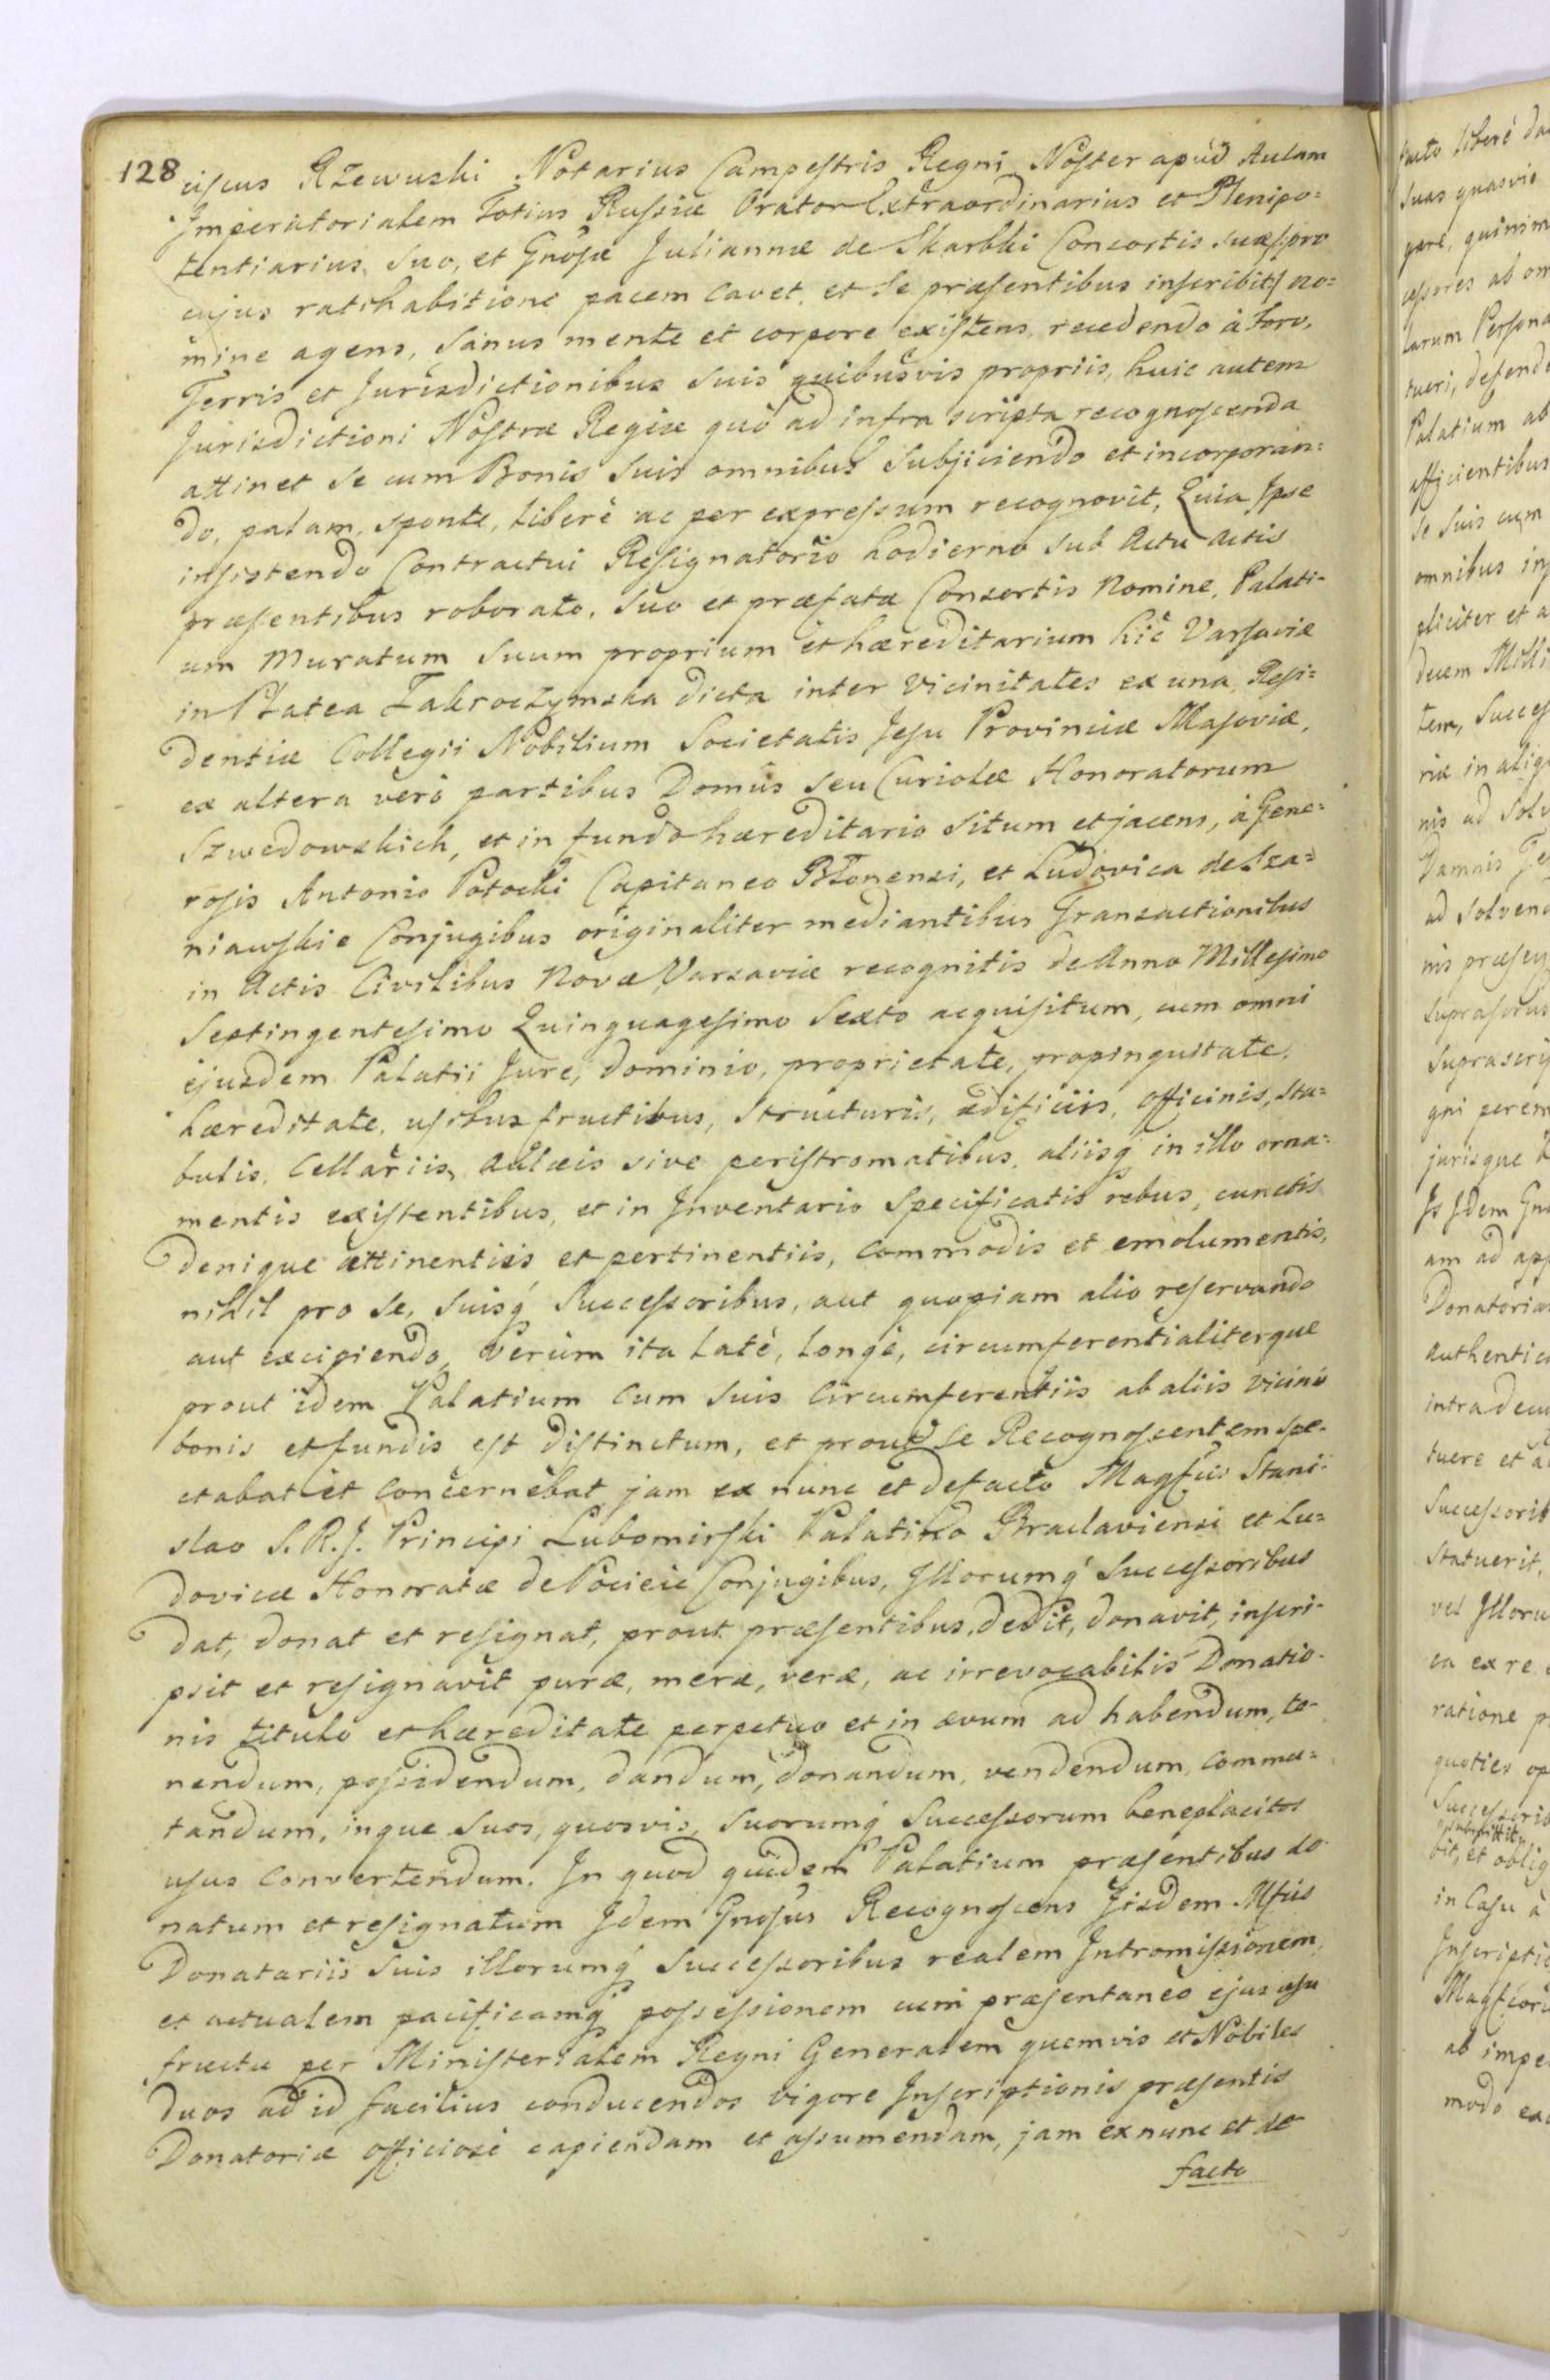 128
ciscus Rzewuski Notarius Campestris Regni Noster apud Aulam
Imperatorialem Totius Russiæ Orator Extraordinarius et Plenipo=
tentiarius, Suo, et Gnosæ Juliannæ de Skarbki Consortis suæ /: pro
cujus ratihabitione pacem cavet, et se præsentibus inscribit :/ no=
mine agens, Sanus mente et corpore existens, recedendo à Foro,
Terris et Jurisdictionibus suis quibusvis propriis, huic autem
Jurisdictioni Nostræ Regiæ quò ad infra scripta recognoscenda
attinet se cum Bonis suis omnibus subjiciendo et incorporan=
do, palam, sponte, liberè ac per expressum recognovit, Quia Ipse
insistendo Contractui Resignatorio hodierno sub Actu actis
præsentibus roborato, suo et præfatæ Consortis Nomine, Palati=
um Muratum Suum proprium et hæreditarium hîc Varsaviæ
in Platea Zakroczymska dicta inter Vicinitates ex una, Resi=
dentiæ Collegii Nobilium Societatis Jesu Provinciæ Masoviæ,
ex altera verò partibus Domûs seu Curiolæ Honoratorum
Szwedowskich, et in fundo hæreditario situm et jacens, à Gene=
rosis Antonio Potocki Capitaneo Błonensi, et Ludovica de Sza=
niawskie Conjugibus originaliter mediantibus Transactionibus
in Actis Civilibus Novæ Varsaviæ recognitis de Anno Millesimo
Septingentesimo Quinquagesimo Sexto acquisitum, cum omni
ejusdem Palatii Jure, Dominio, proprietate, propinquitate,
hæreditate, usibus fructibus, structuris, ædificiis, officinis, sta=
bulis, Cellariis, Aulæis sive peristromatibus, aliisq́ in illo orna=
mentis existentibus, et in Inventario specificatis rebus, cunctis
denique attinentiis et pertinentiis, commodis et emolumentis,
nihil pro se, suisq́ Successoribus, aut quopiam alio reservando
aut excipiendo, Verùm ita latè, longè, circumferentialiterque
prout idem Palatium cum suis Circumferentiis ab aliis vicinis
bonis et fundis est distinctum, et prout se Recognoscentem spe=
ctabat et concernebat jam ex nunc et defacto Magfcis Stani=
slao S. R. J. Principi Lubomirski Palatino Braclaviensi et Lu=
dovicæ Honoratæ de Pocieie Conjugibus, Illorumq́ Successoribus
dat, donat et resignat, prout præsentibus, dedit, donavit, inscri=
psit et resignavit puræ, meræ, veræ, ac irrevocabilis Donatio=
nis titulo et hæreditate perpetuo et in ævum ad habendum, te=
nendum, possidendum, dandum, donandum, vendendum, commu=
tandum, inque suos, quosvis, suorumq́ Successorum beneplacitos
usus convertendum. In quod quidem Palatium præsentibus do=
natum et resignatum Idem Gnosus Recognoscens Iisdem Mfcis
Donatariis suis illorumq́ Successoribus realem Intromissionem,
et actualem pacificamq́ possessionem cum præsentaneo ejus usu
fructu per Ministerialem Regni Generalem quemvis et Nobiles
duos ad id facilius conducendos vigore Inscriptionis præsentis
Donatoriæ officiosè capiendam et assumendam, jam ex nunc et de
facto
facto liberè da
suas quasvis
gare, quinim
cessores ab om
larum Persona
tueri, defende
Palatium ab
afficientibus
se suis cum
omnibus in
pliciter et a
decem Milli
tem, Succes
riæ in aliq
nis ad solv
Damnis
ad solven
nis præsen
suprascrip
gni perem
jurisque
Is Idem Gno
am ad app
Donatoria
authentic
intra decu
tuere et a
Successorib
statuerit,
vel Illoru
ea ex re
ratione p
quoties op
Successorib
bit, et oblig
in Casu à
Inscriptio
Magfcoru
ab impe
modo ea